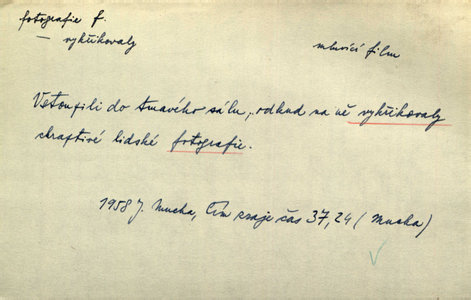 fotografie f.
— vykřikovaly
mluvící film
Vstoupili do tmavého sálu, odkud na ně vykřikovaly
chraptivé lidské fotografie.
1958 J. Mucha, Čím zraje čas 37, 24 (Mucha)